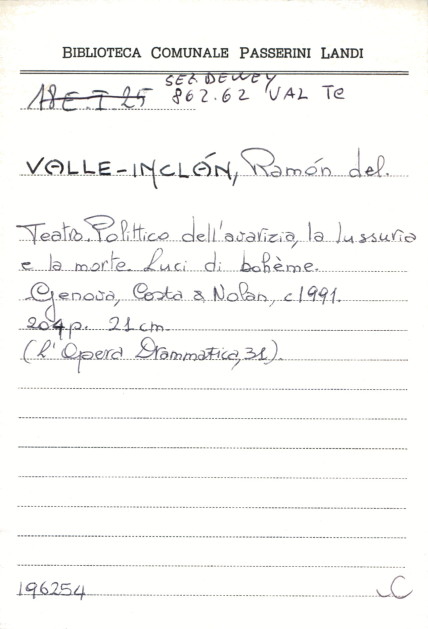 BIBLIOTECA COMUNALE PASSERINI LANDI
SEZ. DEWEY
18E.I 25 862.62 VAL Te
VALLE-INCLÁN, Ramón del.
Teatro. Polittico dell'avarizia, la lussuria
e la morte. Luci di bohème.
Genova, Costa & Nolan, c1991.
204p. 21 cm.
(L'Opera Drammatica, 31).
196254